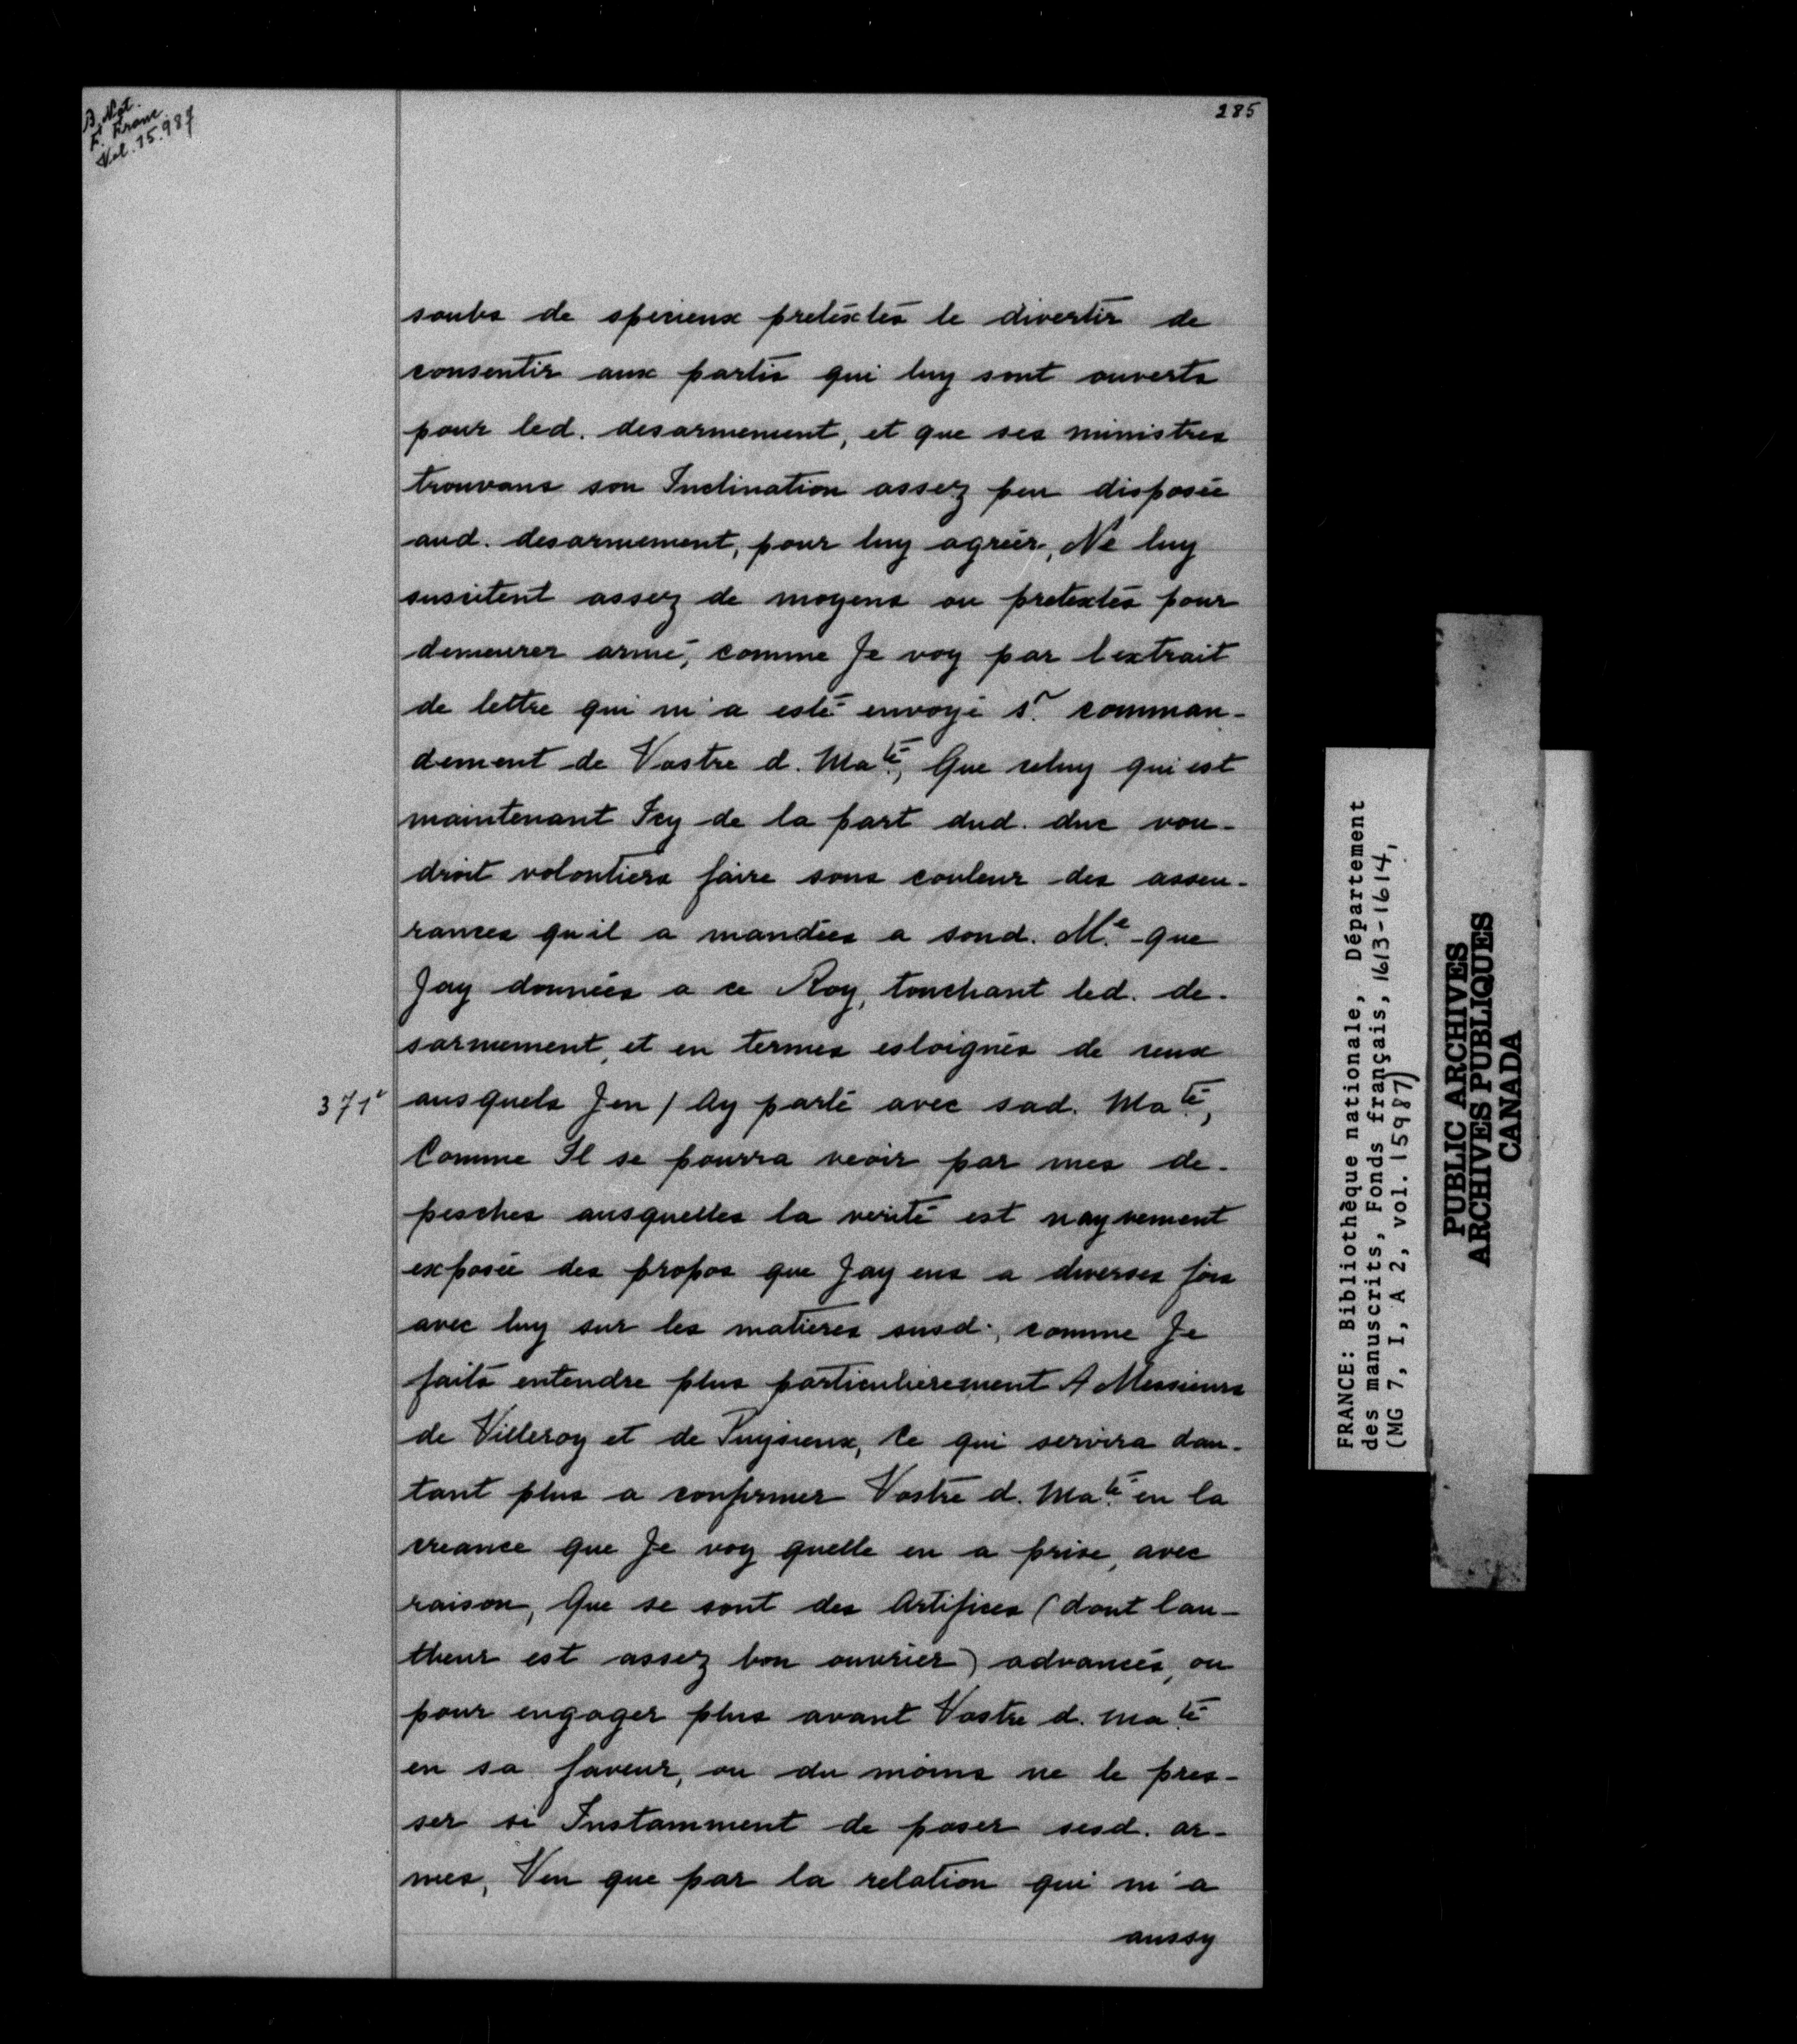 B. Nat.
F. Franc.
Vol. 15.987
285
soubs de specieux pretextes le divertir de
consentir aux partis qui luy sont ouverts
pour led. desarmement, et que ses ministres
trouvans son Inclination assez peu disposée
aud. desarmement, pour luy agréer, Ne luy
suscitent assez de moyens ou pretextes pour
demeurer armé, comme Je voy par lextrait
de lettre qui m'a esté envoyé sr. comman-
dement de Vostre d. Maté, Que celuy qui est
maintenant Icy de la part dud. duc vou-
droit volontiers faire sous couleur des asseu-
rances quil a mandées a sond. Me que
Jay données a ce Roy, touchant led. de-
sarmement, et en termes esloignés de ceux
371v
ausquels Jen / Ay parlé avec sad. Maté,
Comme Il se pourra veoir par mes de-
pesches ausquelles la verité est nayvement
exposée des propos que Jay eus a diverses fois
avec luy sur les matieres susd., comme Je
faits entendre plus particulierement A Messieurs
de Villeroy et de Puysieux, ce qui servira dau-
tant plus a confirmer Vostre d. Maté en la
creance que Je voy quelle en a prise, avec
raison, Que se sont des Artifices (dont lau-
theur est assez bon ouvrier) advancés, ou
pour engager plus avant Vostre d. Maté
en sa faveur, ou du moins ne le pres-
ser si Instamment de poser sesd. ar-
mes, Veu que par la relation qui m'a
aussy
FRANCE: Bibliothèque nationale, Département
des manuscrits, Fonds français, 1613-1614,
(MG 7, I, A 2, vol. 15987)
PUBLIC ARCHIVES
ARCHIVES PUBLIQUES
CANADA